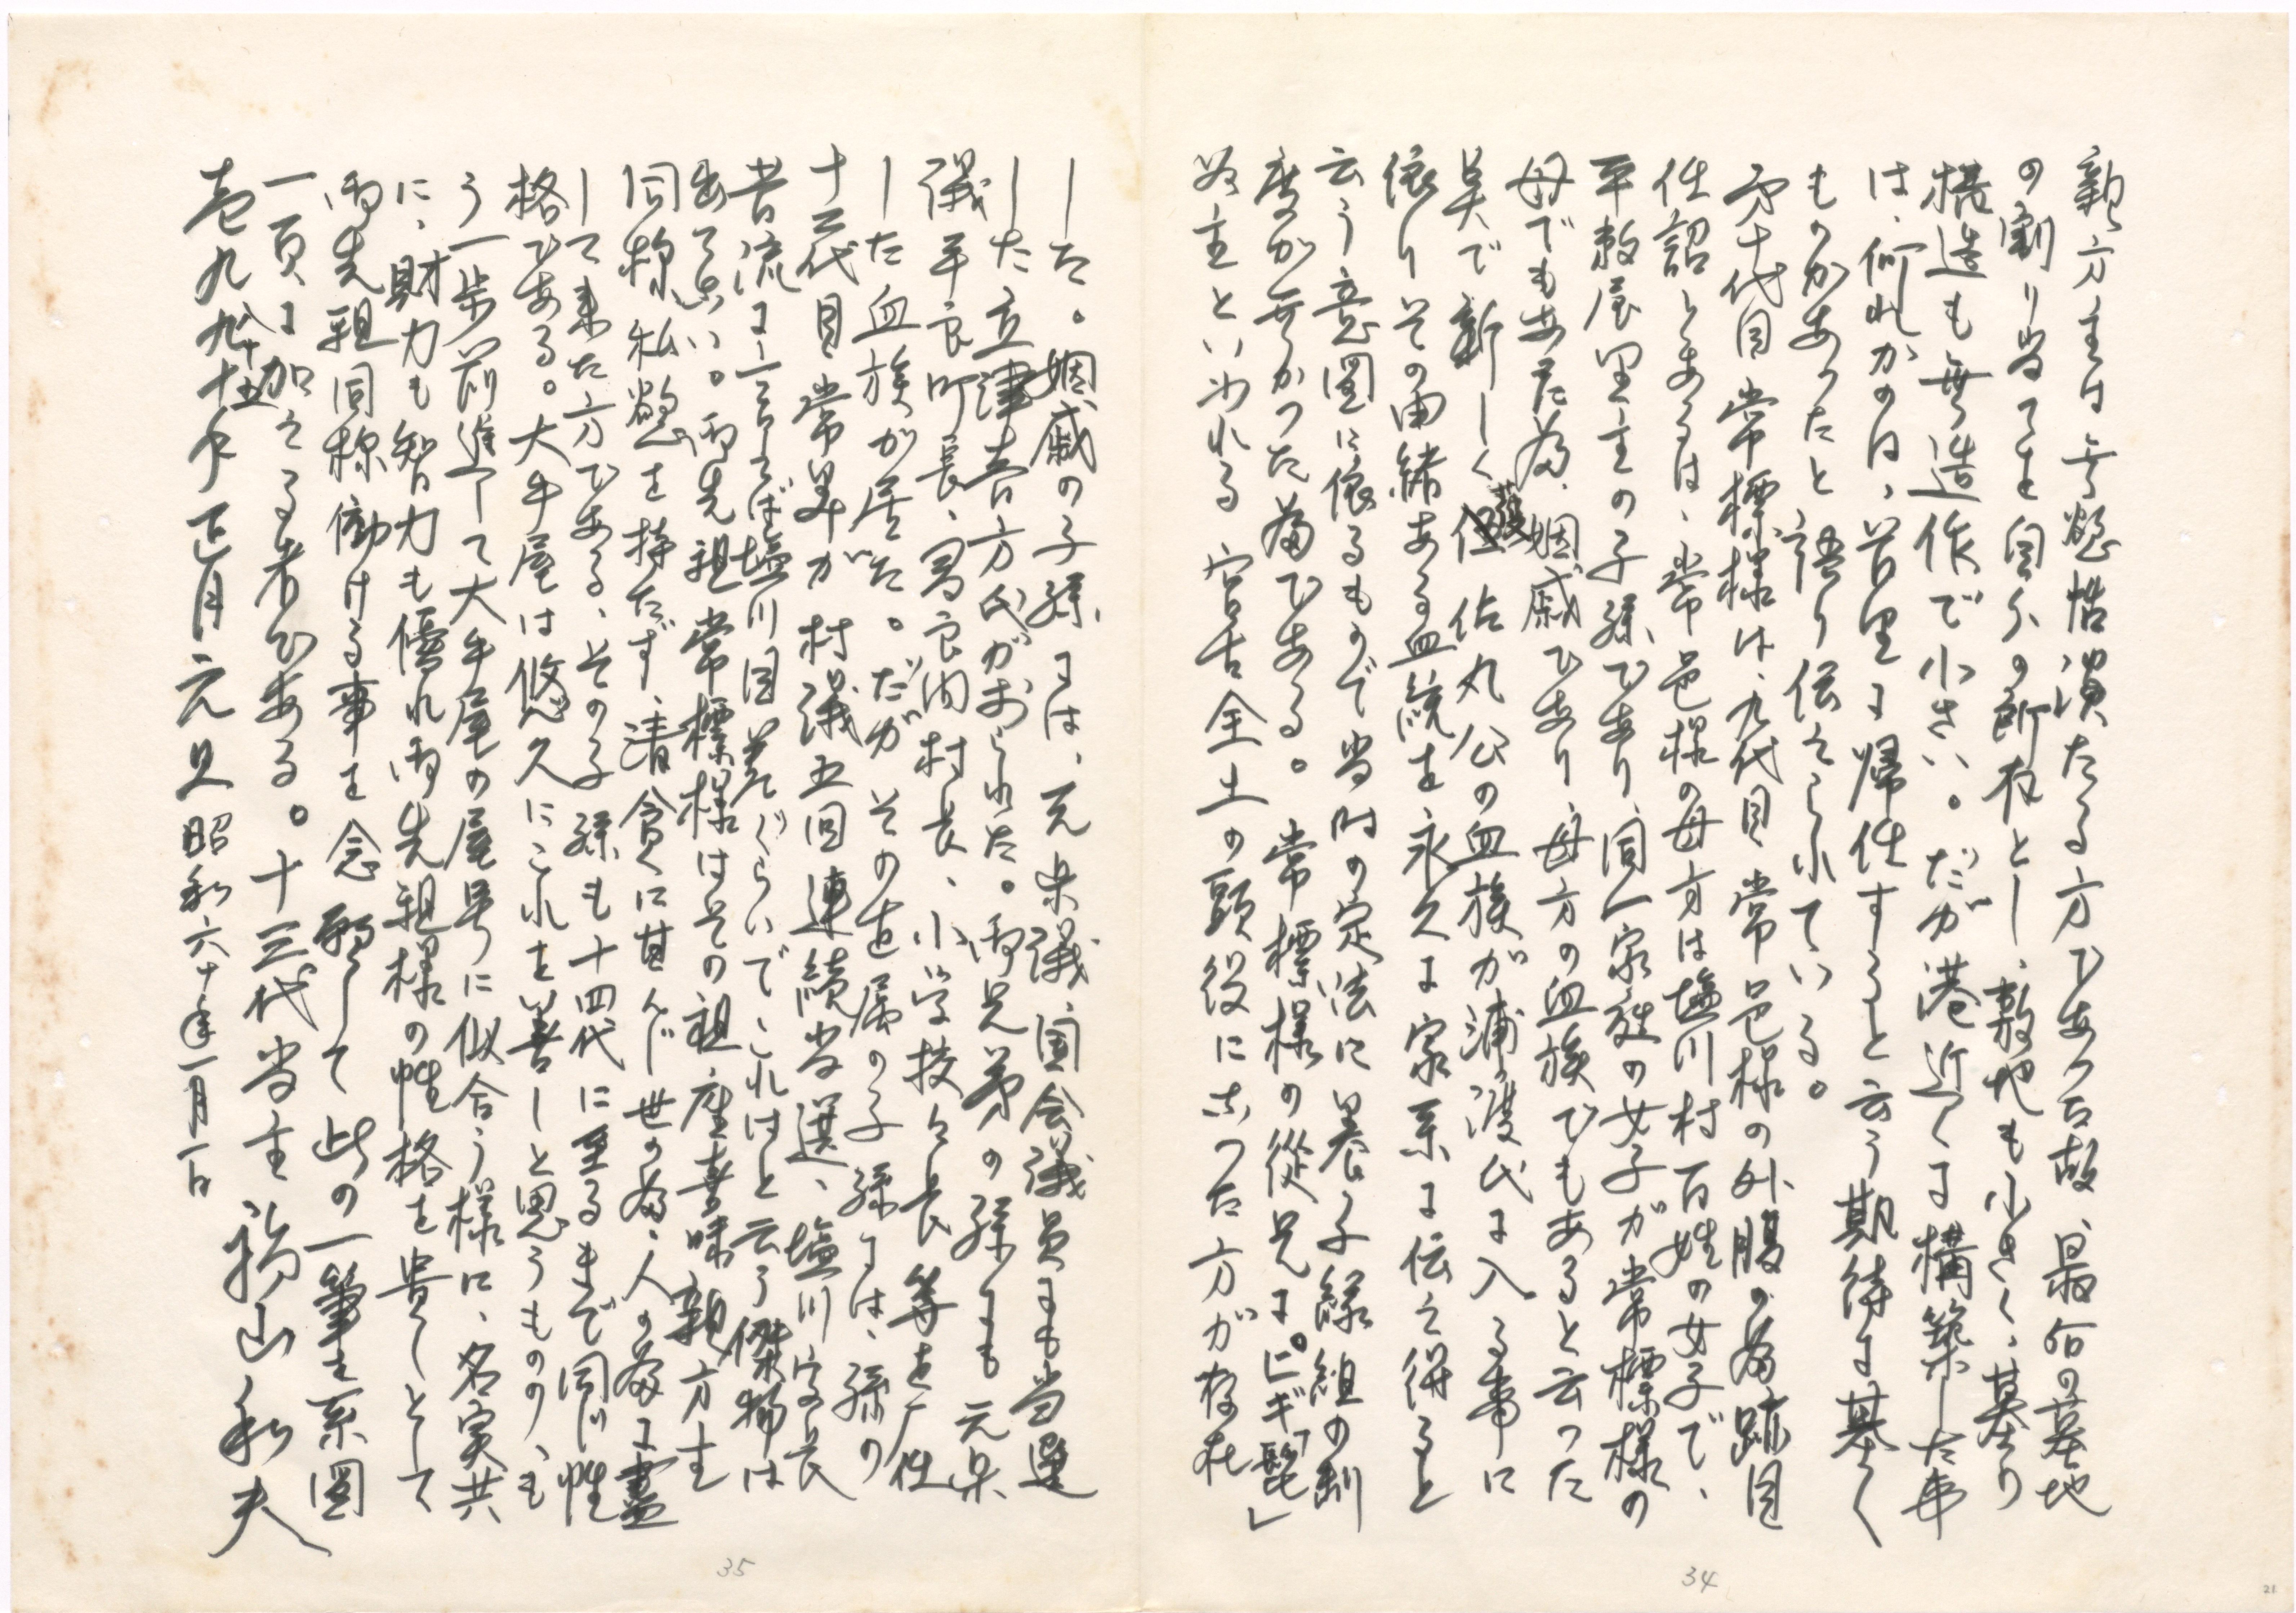 親方主は無慾恬淡たる方であった故、最后の墓地
の割り当てを自分の所有とし、敷地も小さく、墓の
構造も無造作で小さい。だが港近くに構築した事
は、何れかのは、昔里に帰住すると云う期待に基く
ものがあったと語り伝えられている。
第十代目常標様は、九代目常邑様の外腹の為跡目
仕詔とあるは、常邑様の母方は塩川村百姓の女子で、
平敷屋里主の子孫であり、同一家族の女子が常標様の
母でもあった為、姻戚であり、母方の血族でもあると云った
異で新しく護佐丸公の血族が浦渡氏に入る事に
依りその由緒ある血統を永久に家系に伝え得ると
云う意図に依るもので当時の定法に養子縁組の制
度が無かった為である。常標様の従兄に。ヒギ「髭」
首主といわれる宮古全土の頭役になった方が存在
した。姻戚の子孫には、元県議、国会議員にも当選
した立津春方氏がおられた。両兄弟の孫にも元県
議平良町長、多良間村長、小学校々長等を歴任
した血族が居た。だがその直属の子孫には、孫の
十二代目常昇が村議五回連続当選、塩川字長
昔流に言えば塩川目差ぐらいでこれはと云う傑物は
出てない。両先祖常標様はその祖座喜味親方主
同様私慾を持たず、清貧に甘んじ世の為、人の為に盡
して来た方である、その子孫も十四代に至るまで同じ性
格である。大牛屋は悠久にこれを善しと思うものゝも
う一歩前進して大牛屋の屋号に似合う様に、名実共
に、財力も智力も優れ両先祖様の性格を貴しとして
両先祖同様働ける事を念願して此の一筆を系図
一頁に加える者である。十三代当主 福山和夫
壱九八十五年正月元旦 昭和六十年一月一日
35
34
21